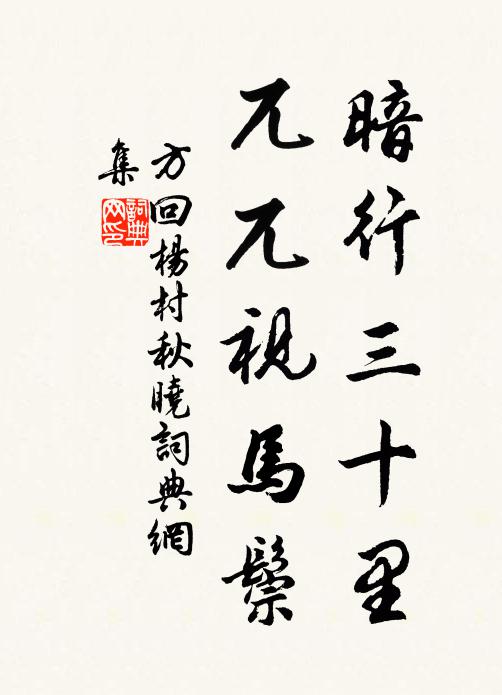 暗行三十里
兀兀視馬鬃
方回楊村秋曉詞典網
集
詞典
网印